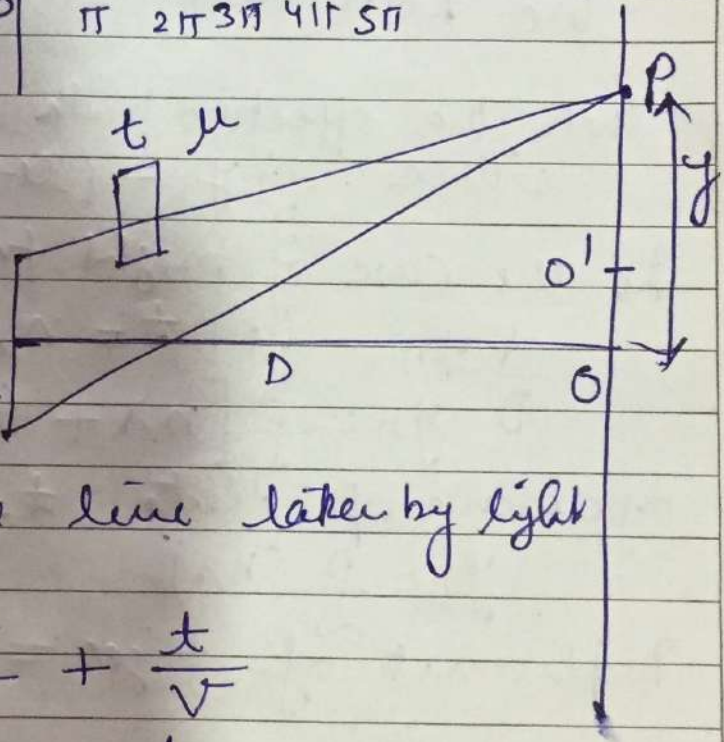 π 2π 3π 4π 5π
P
t μ
y
O'
D
O
line taken by light
+ t/v